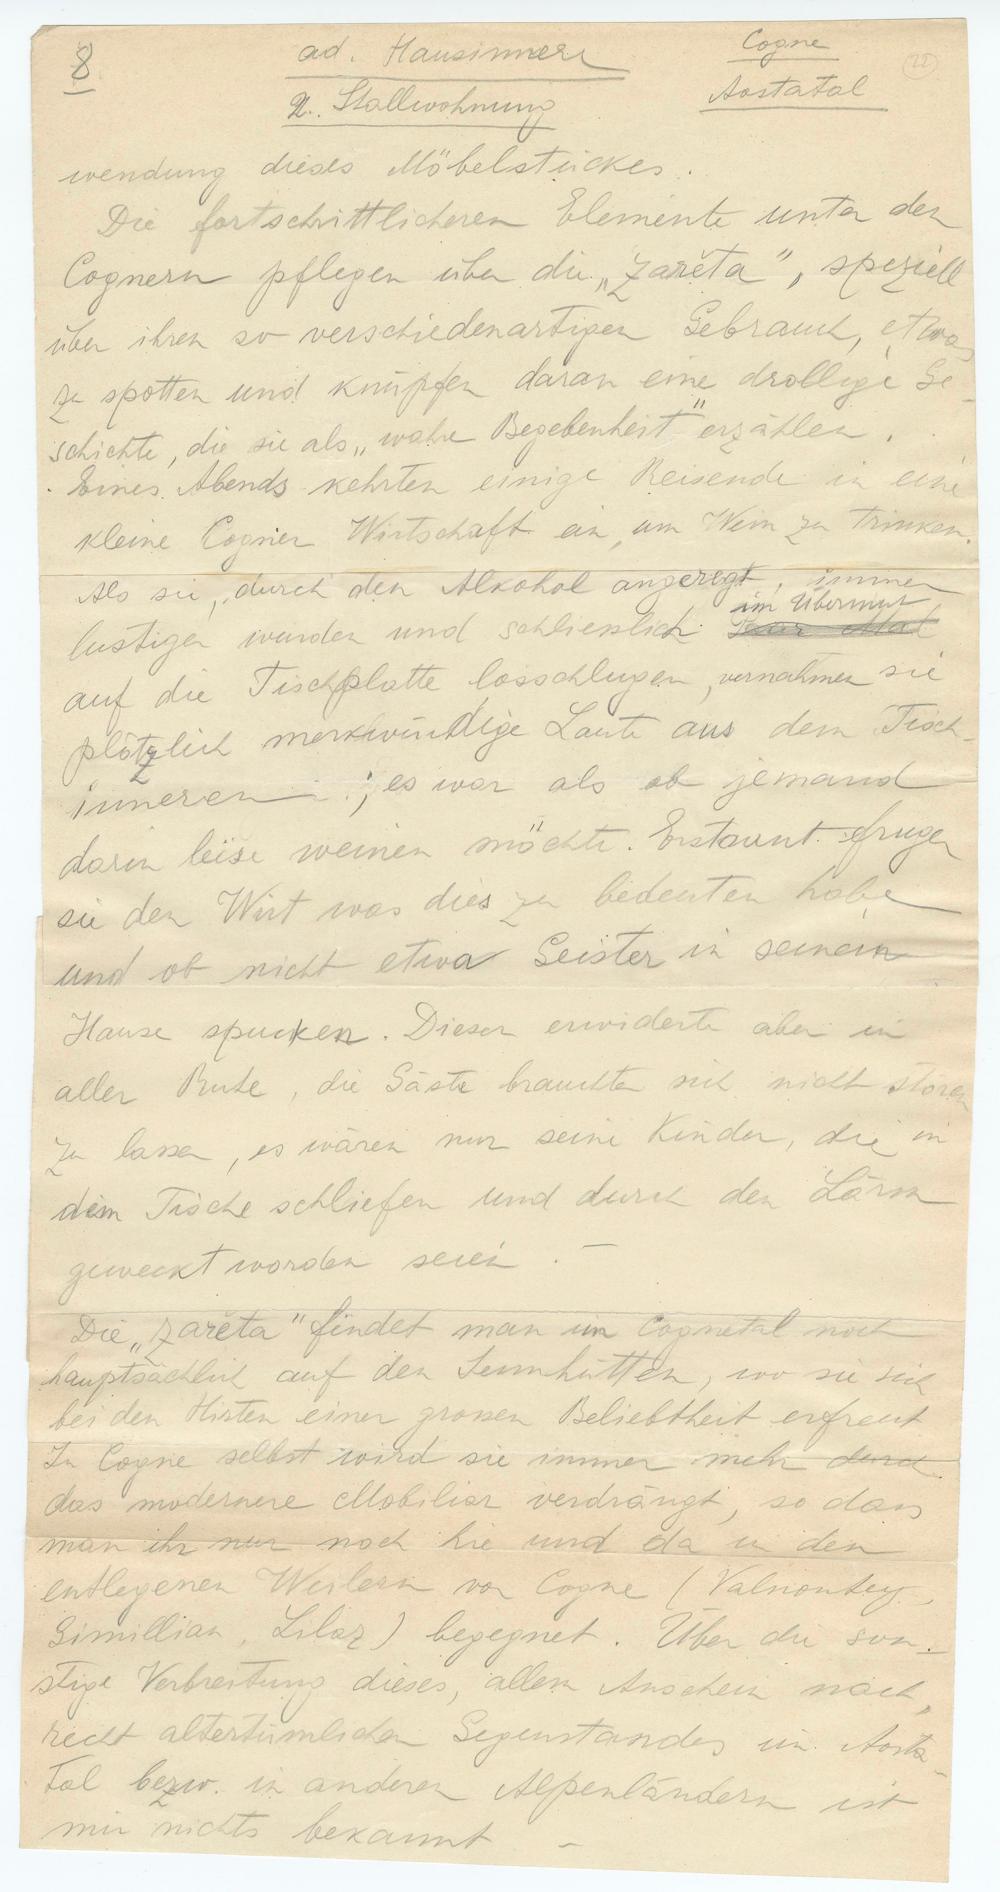 8
ad. Hausinnere
Cogne
22
2. Stallwohnung
Aostatal
wendung dieses Möbelstückes.
Die fortschrittlicheren Elemente unter den
Cognern pflegen über die „zarĕta", speziell
über ihren so verschiedenartigen Gebrauch, etwas
zu spotten und knüpfen daran eine drollige Ge-
schichte, die sie als „wahre Begebenheit" erzählen.
Eines Abends kehrten einige Reisende in eine
kleine Cogner Wirtschaft ein, um Wein zu trinken.
Als sie, durch den Alkohol angeregt, immer
im Übermut
lustiger wurden und schliesslich
auf die Tischplatte losschlugen, vernahmen sie
plötzlich merkwürdige Laute aus dem Tisch-
inneren ; es war als ob jemand
darin leise weinen möchte. Erstaunt frugen
sie den Wirt was dies zu bedeuten habe
und ob nicht etwa Geister in seinem
Hause spucken. Dieser erwiderte aber in
aller Ruhe, die Gäste brauchten sich nicht stören
zu lassen, es wären nur seine Kinder, die in
dem Tische schliefen und durch den Lärm
geweckt worden seien. —
Die „zarĕta" findet man im Cognetal noch
hauptsächlich auf den Sennhütten, wo sie sich
bei den Hirten einer grossen Beliebtheit erfreut
In Cogne selbst wird sie immer mehr durch
das modernere Mobiliar verdrängt, so dass
man ihr nur noch hie und da in den
entlegenen Weilern von Cogne (Valnontey,
Gimillian, Lilaz) begegnet. Über die son-
stige Verbreitung dieses, allem Anschein nach,
recht altertümlichen Gegenstandes im Aosta-
tal bezw. in anderen Alpenländern ist
mir nichts bekannt —